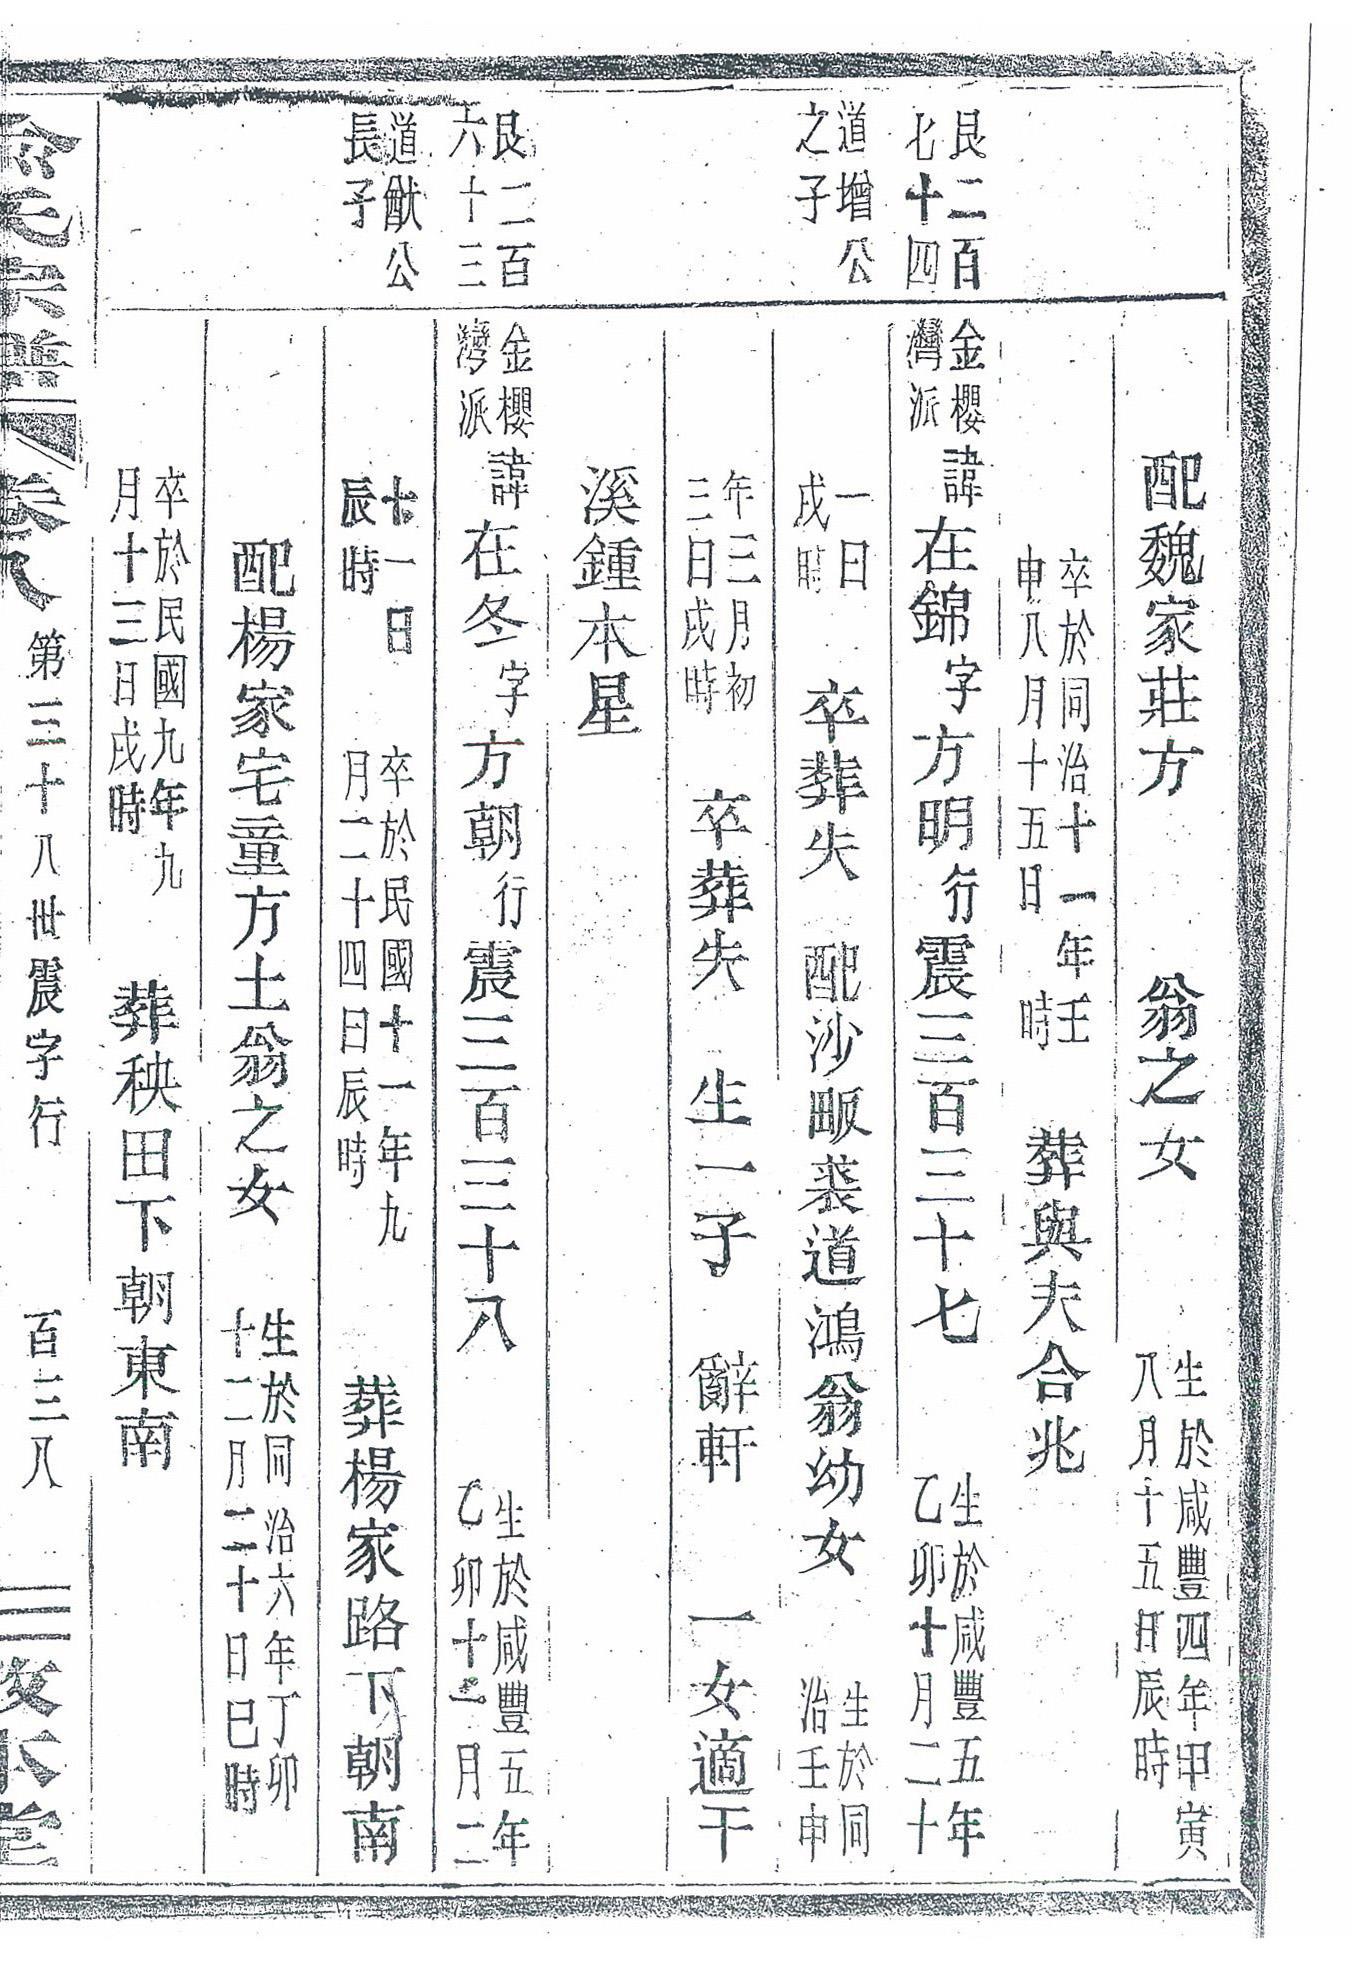 配魏家莊方　翁之女　生於咸豐四年甲寅八月十五日辰時
卒於同治十一年壬申八月十五日　時　葬與夫合兆
艮二百七十四　金櫻灣派　諱在錦字方明行震三百三十七　生於咸豐五年乙卯十月二十
道增公之子　一日戌時　卒葬失　配沙畈裘道鴻翁幼女　生於同治壬申
年三月初三日戌時　卒葬失　生一子　辭軒　一女適干
溪鍾本星
艮二百六十三　金櫻灣派　諱在冬字方朝行震三百三十八　生於咸豐五年乙卯十二月二
道猷公長子　十一日辰時　卒於民國十一年九月二十四日辰時　葬楊家路下朝南
配楊家宅童方土翁之女　生於同治六年丁卯十二月二十日巳時
卒於民國九年九月十三日戌時　葬秧田下朝東南
氏宗譜　卷八　第三十八世震字行　百三八　敦本堂